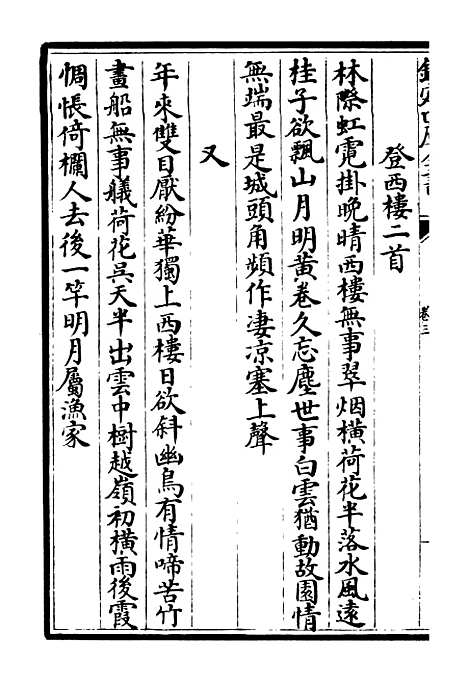 登西樓二首
林際虹霓掛晚晴西樓無事翠烟橫荷花半落水風遠
桂子欲飄山月明黃卷久忘塵世事白雲猶動故園情
無端最是城頭角頻作淒凉塞上聲
又
年來雙目厭紛華獨上西樓日欲斜幽鳥有情啼苦竹
畫船無事艤荷花吳天半出雲中樹越嶺初橫雨後霞
惆悵倚欄人去後一竿明月屬漁家